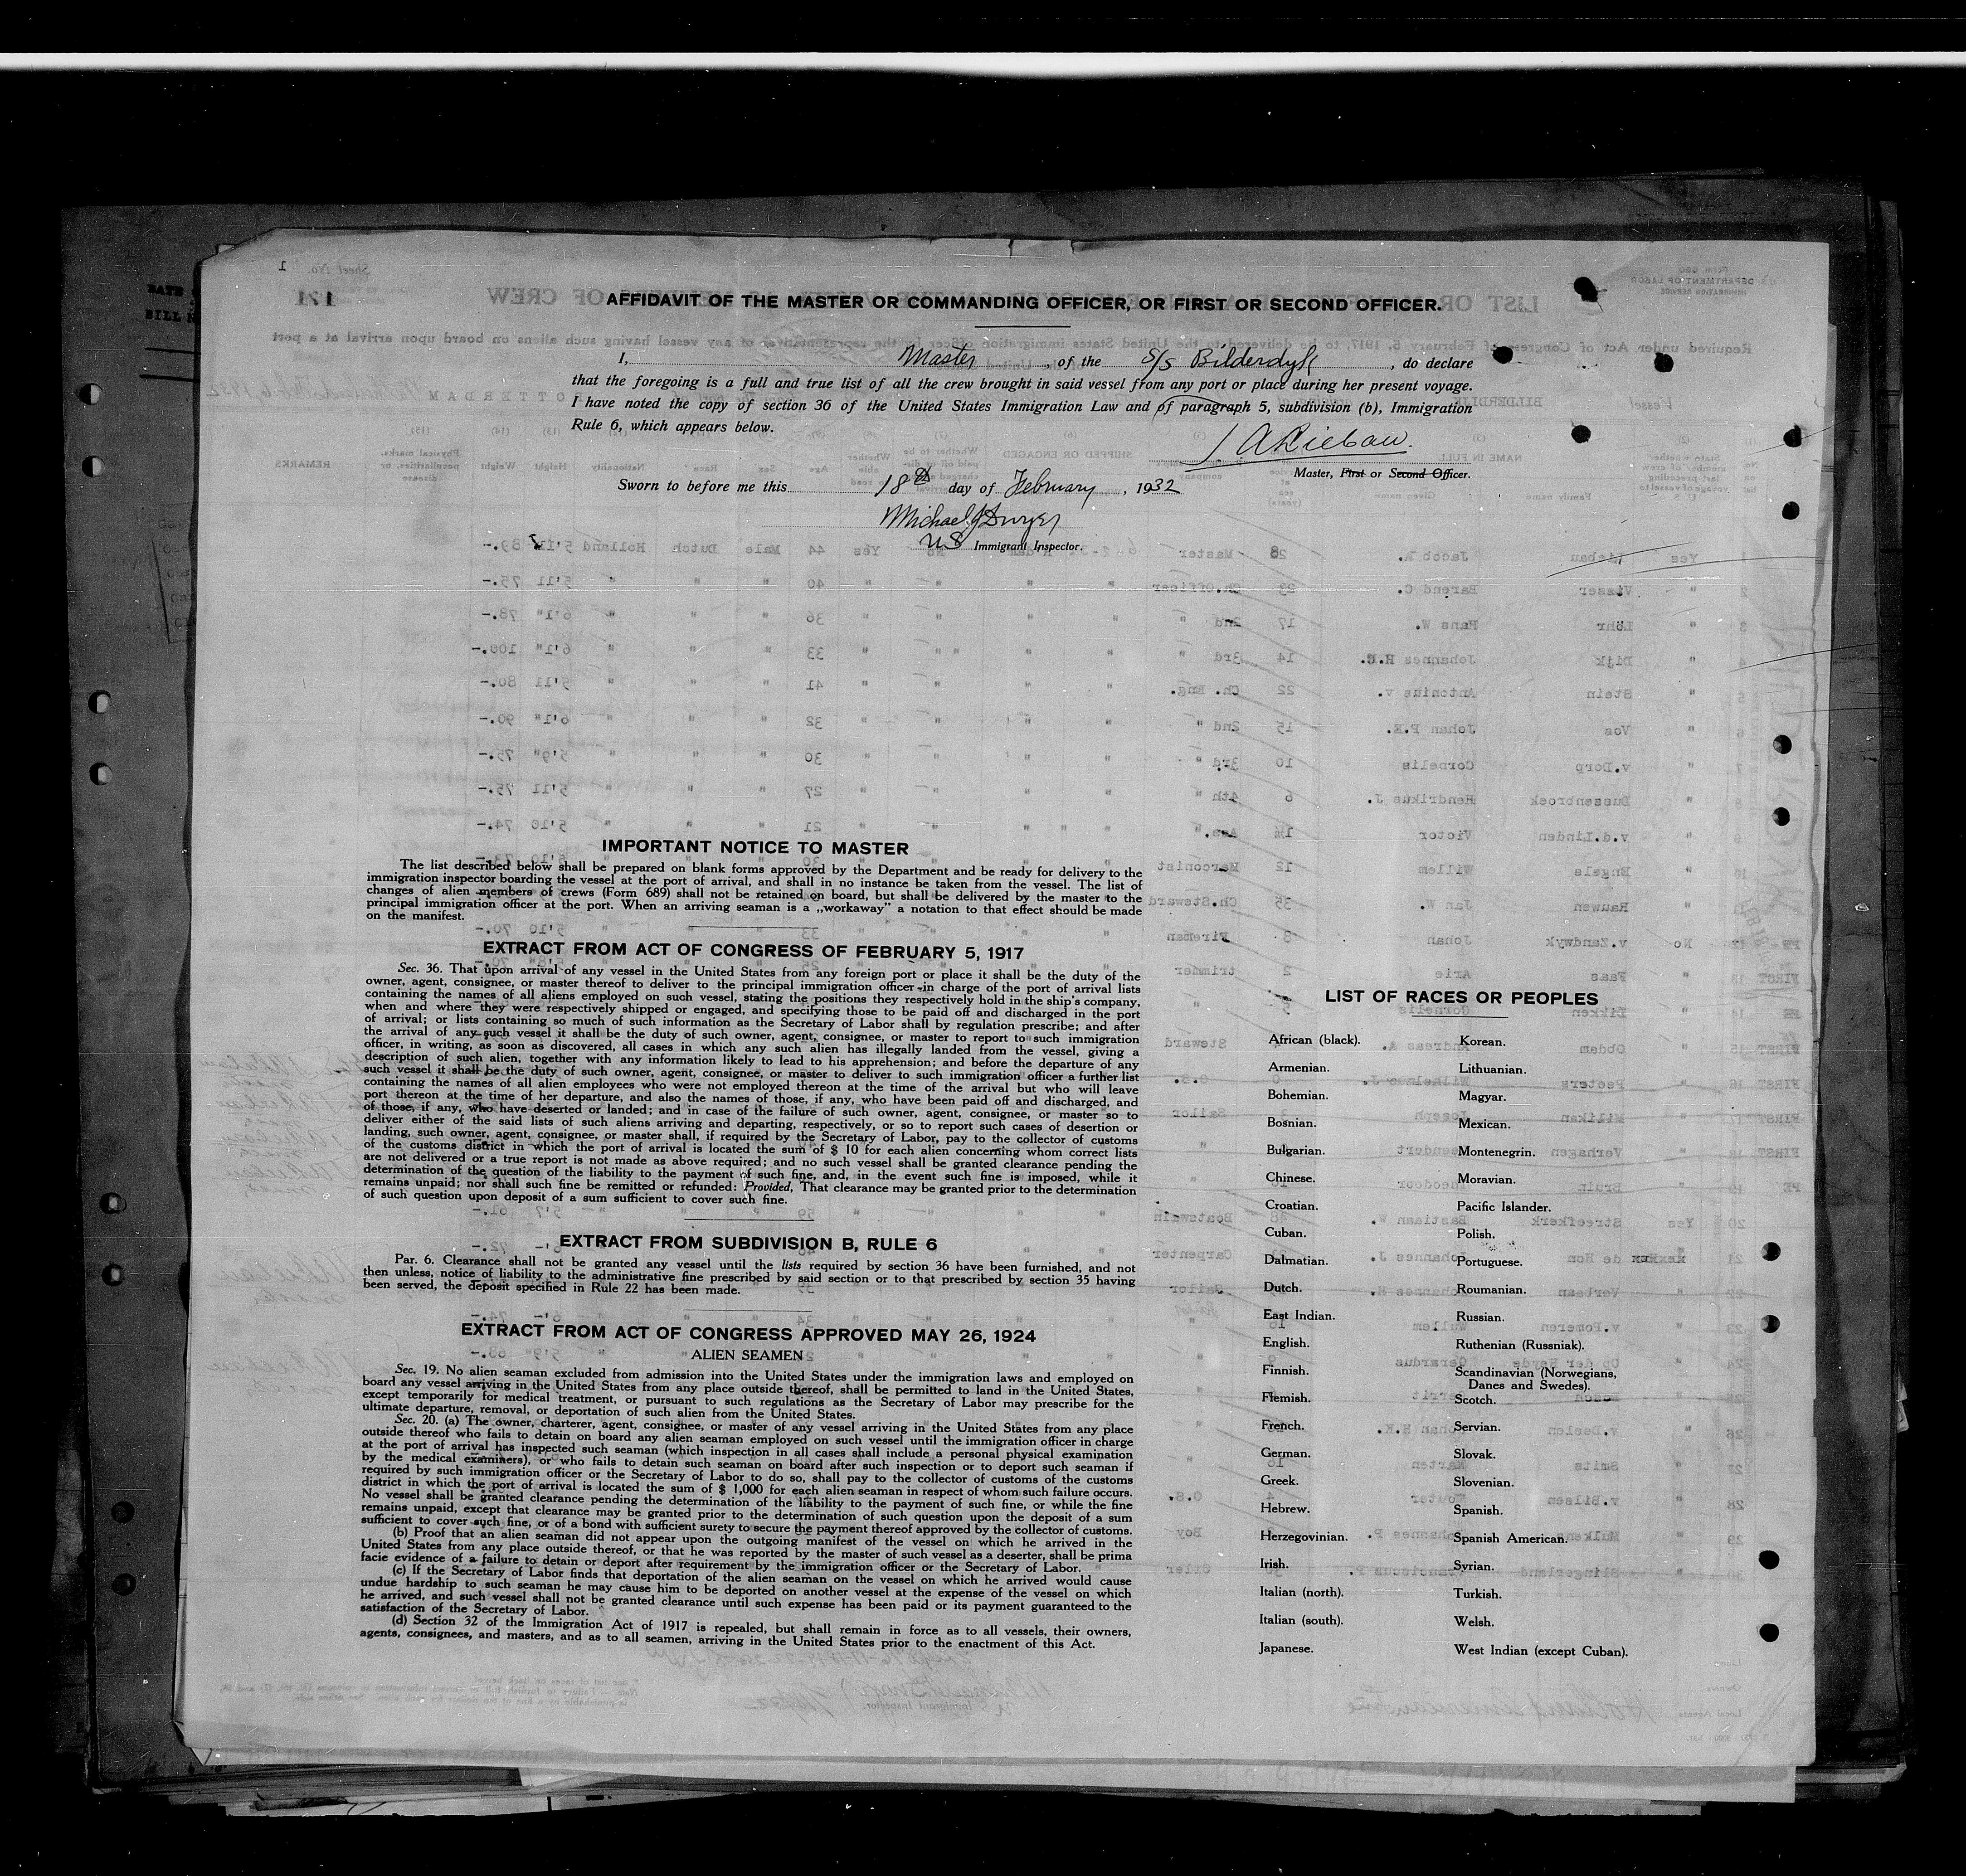 AFFIDAVIT OF THE MASTER OR COMMANDING OFFICER, OR FIRST OR SECOND OFFICER.
I, Master, of the S/S Bilderdyk, do declare
that the foregoing is a full and true list of all the crew brought in said vessel from any port or place during her present voyage.
I have noted the copy of section 36 of the United States Immigration Law and of paragraph 5, subdivision (b), Immigration
Rule 6, which appears below.
Master, First or Second Officer.
Sworn to before me this 18th day of February, 1932
Michael J Dwyer
US Immigrant Inspector.
IMPORTANT NOTICE TO MASTER
The list described below shall be prepared on blank forms approved by the Department and be ready for delivery to the
immigration inspector boarding the vessel at the port of arrival, and shall in no instance be taken from the vessel. The list of
changes of alien members of crews (Form 689) shall not be retained on board, but shall be delivered by the master to the
principal immigration officer at the port. When an arriving seaman is a „workaway” a notation to that effect should be made
on the manifest.
EXTRACT FROM ACT OF CONGRESS OF FEBRUARY 5, 1917
Sec. 36. That upon arrival of any vessel in the United States from any foreign port or place it shall be the duty of the
owner, agent, consignee, or master thereof to deliver to the principal immigration officer in charge of the port of arrival lists
containing the names of all aliens employed on such vessel, stating the positions they respectively hold in the ship's company,
when and where they were respectively shipped or engaged, and specifying those to be paid off and discharged in the port
of arrival; or lists containing so much of such information as the Secretary of Labor shall by regulation prescribe; and after
the arrival of any such vessel it shall be the duty of such owner, agent, consignee, or master to report to such immigration
officer, in writing, as soon as discovered, all cases in which any such alien has illegally landed from the vessel, giving a
description of such alien, together with any information likely to lead to his apprehension; and before the departure of any
such vessel it shall be the duty of such owner, agent, consignee, or master to deliver to such immigration officer a further list
containing the names of all alien employees who were not employed thereon at the time of the arrival but who will leave
port thereon at the time of her departure, and also the names of those, if any, who have been paid off and discharged, and
of those, if any, who have deserted or landed; and in case of the failure of such owner, agent, consignee, or master so to
deliver either of the said lists of such aliens arriving and departing, respectively, or so to report such cases of desertion or
landing, such owner, agent, consignee, or master shall, if required by the Secretary of Labor, pay to the collector of customs
of the customs district in which the port of arrival is located the sum of $ 10 for each alien concerning whom correct lists
are not delivered or a true report is not made as above required; and no such vessel shall be granted clearance pending the
determination of the question of the liability to the payment of such fine, and, in the event such fine is imposed, while it
remains unpaid; nor shall such fine be remitted or refunded: Provided, That clearance may be granted prior to the determination
of such question upon deposit of a sum sufficient to cover such fine.
EXTRACT FROM SUBDIVISION B, RULE 6
Par. 6. Clearance shall not be granted any vessel until the lists required by section 36 have been furnished, and not
then unless, notice of liability to the administrative fine prescribed by said section or to that prescribed by section 35 having
been served, the deposit specified in Rule 22 has been made.
EXTRACT FROM ACT OF CONGRESS APPROVED MAY 26, 1924
ALIEN SEAMEN
Sec. 19. No alien seaman excluded from admission into the United States under the immigration laws and employed on
board any vessel arriving in the United States from any place outside thereof, shall be permitted to land in the United States,
except temporarily for medical treatment, or pursuant to such regulations as the Secretary of Labor may prescribe for the
ultimate departure, removal, or deportation of such alien from the United States.
Sec. 20. (a) The owner, charterer, agent, consignee, or master of any vessel arriving in the United States from any place
outside thereof who fails to detain on board any alien seaman employed on such vessel until the immigration officer in charge
at the port of arrival has inspected such seaman (which inspection in all cases shall include a personal physical examination
by the medical examiners), or who fails to detain such seaman on board after such inspection or to deport such seaman if
required by such immigration officer or the Secretary of Labor to do so, shall pay to the collector of customs of the customs
district in which the port of arrival is located the sum of $ 1,000 for each alien seaman in respect of whom such failure occurs.
No vessel shall be granted clearance pending the determination of the liability to the payment of such fine, or while the fine
remains unpaid, except that clearance may be granted prior to the determination of such question upon the deposit of a sum
sufficient to cover such fine, or of a bond with sufficient surety to secure the payment thereof approved by the collector of customs.
(b) Proof that an alien seaman did not appear upon the outgoing manifest of the vessel on which he arrived in the
United States from any place outside thereof, or that he was reported by the master of such vessel as a deserter, shall be prima
facie evidence of a failure to detain or deport after requirement by the immigration officer or the Secretary of Labor.
(c) If the Secretary of Labor finds that deportation of the alien seaman on the vessel on which he arrived would cause
undue hardship to such seaman he may cause him to be deported on another vessel at the expense of the vessel on which
he arrived, and such vessel shall not be granted clearance until such expense has been paid or its payment guaranteed to the
satisfaction of the Secretary of Labor.
(d) Section 32 of the Immigration Act of 1917 is repealed, but shall remain in force as to all vessels, their owners,
agents, consignees, and masters, and as to all seamen, arriving in the United States prior to the enactment of this Act.
LIST OF RACES OR PEOPLES
African (black).
Armenian.
Bohemian.
Bosnian.
Bulgarian.
Chinese.
Croatian.
Cuban.
Dalmatian.
Dutch.
East Indian.
English.
Finnish.
Flemish.
French.
German.
Greek.
Hebrew.
Herzegovinian.
Irish.
Italian (north).
Italian (south).
Japanese.
Korean.
Lithuanian.
Magyar.
Mexican.
Montenegrin.
Moravian.
Pacific Islander.
Polish.
Portuguese.
Roumanian.
Russian.
Ruthenian (Russniak).
Scandinavian (Norwegians,
Danes and Swedes).
Scotch.
Servian.
Slovak.
Slovenian.
Spanish.
Spanish American.
Syrian.
Turkish.
Welsh.
West Indian (except Cuban).